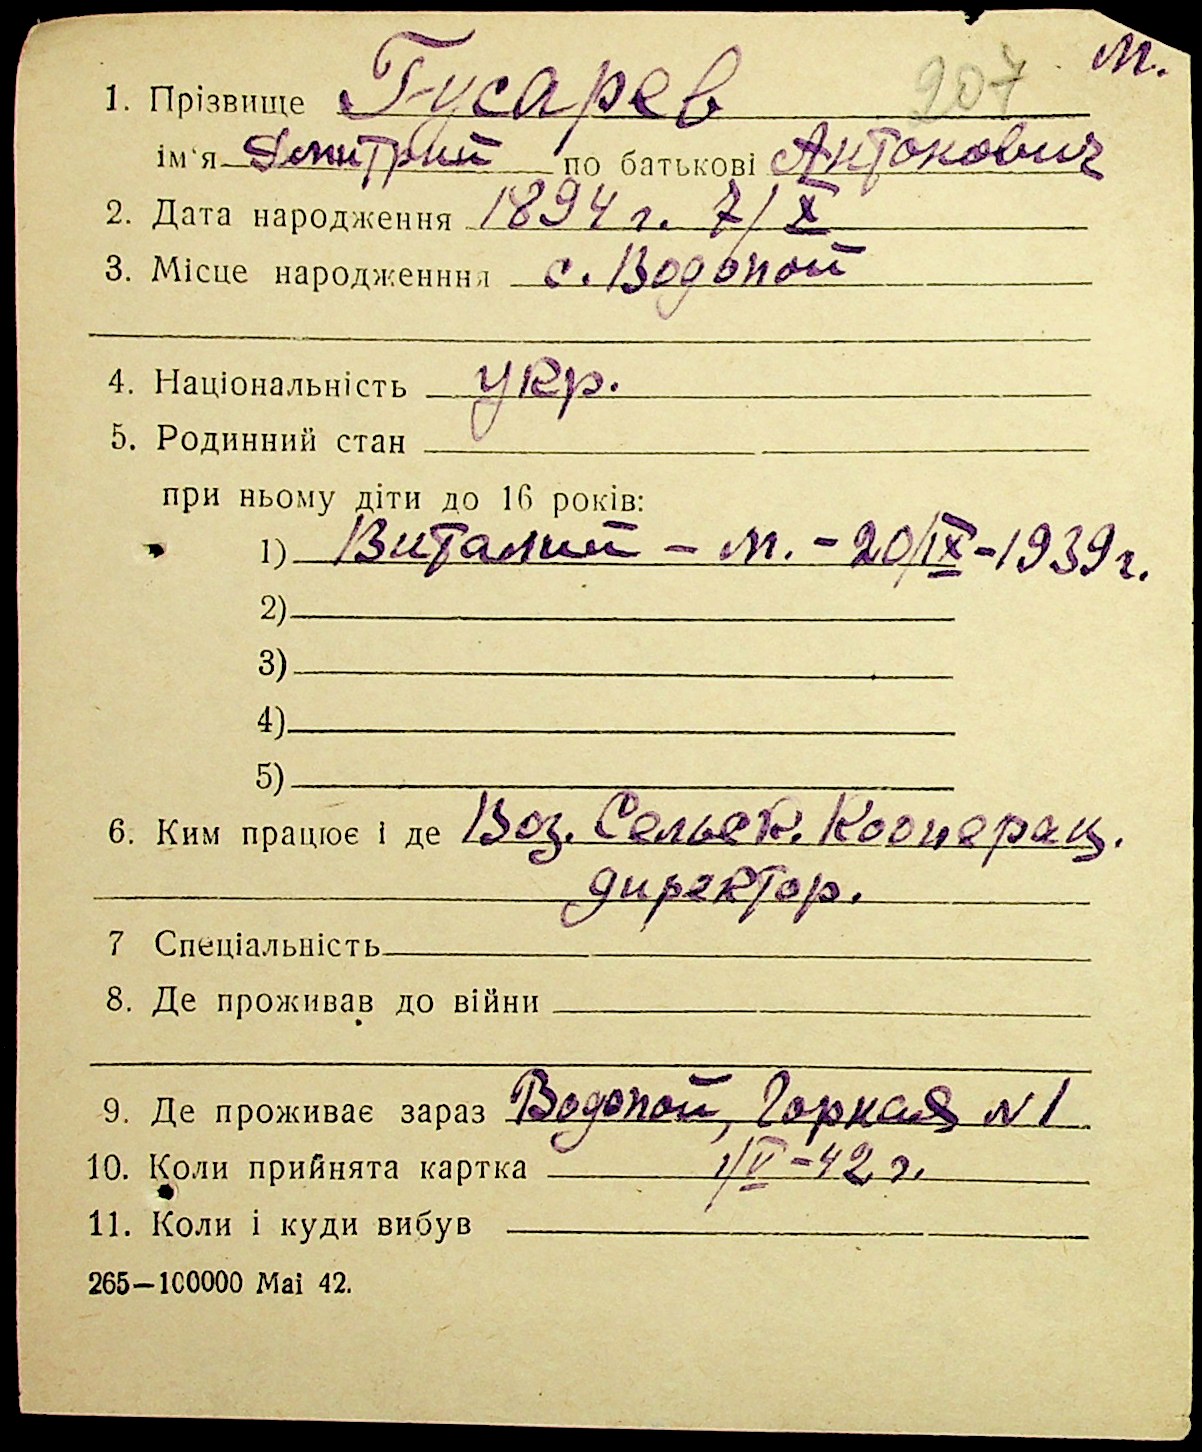 м.
207
1. Прізвище Гусарев
ім'я Дмитрий по батькові Антонович
2. Дата народження 1894 г. 7/X
3. Місце народженння с. Водопой
4. Національність укр.
5. Родинний стан
при ньому діти до 16 років:
1) Виталий – м. – 20/IX – 1939 г.
2)
3)
4)
5)
6. Ким працює і де Воз. Сельск. Кооперац.
директор.
7 Спеціальність
8. Де проживав до війни
9. Де проживає зараз Водопой, Горная N 1
10. Коли прийнята картка 1/V – 42 г.
11. Коли і куди вибув
265—100000 Маі 42.